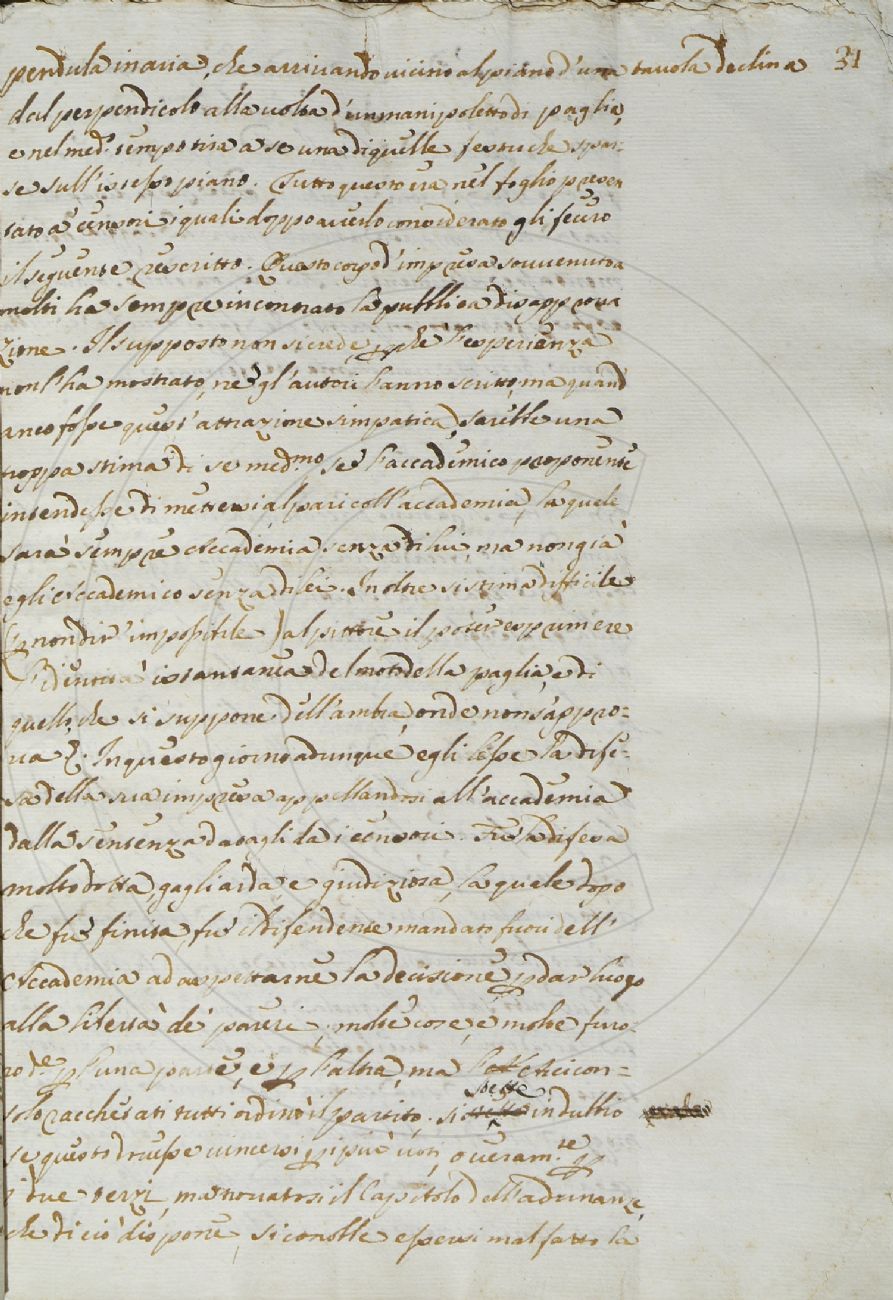 pendula in aria, che arrivando vicino al piano d'una tavola declina 31
dal perpendicolo alla volta d'un manipoletto di paglia,
e nel med.º tempo tira a se una di quelle festuche spar:
se sull'istesso piano. Tutto questo era nel foglio presen
tato a' censori, i quali doppo averlo considerato gli fecero
il seguente rescritto. Questo corpo d'impresa sovvenuto a
molti ha sempre incontrato la pubblica disapprova
zione. Il supposto non si crede, p che l'esperienza
non l'ha mostrato, ne gl'autori l'anno scritto, ma quand
anco fosse quest'attrazione simpatica, sarebbe una
troppa stima di se med.mo se l'accademico proponente
intendesse di mettersi al pari coll'accademia, la quale
sarà sempre Accademia senza di lui, ma non già
egli Accademico senza di lei. Inoltre si stima difficile
(p non dir' impossibile) al pittore il poter esprimere
l'identità istantanea del moto della paglia, e di
quello, che si suppone dell'ambra, onde non s'appro=
va &. In questo giorno adunque egli lesse la dife=
sa della sua impresa appellandosi all'accademia
dalla sentenza datagli da i censori. Fù la difesa
molto dotta, gagliarda e giudiziosa, la quale dopo
che fù finita, fù il difendente mandato fuori dell'
Accademia ad aspettarne la decisione p dar luogo
alla libertà de' pareri, molte cose, e molte furo=
no d.e p l'una parte, e p l'altra, ma l'Arcicon=
solo racchetati tutti ordinò il partito. si stette in dubbio
se questo dovesse vincersi p i più voti, o veram.te p
i due terzi, ma trovatosi il Capitolo dell'adunanze,
che di ciò dispone, si conobbe essersi mal fatto la